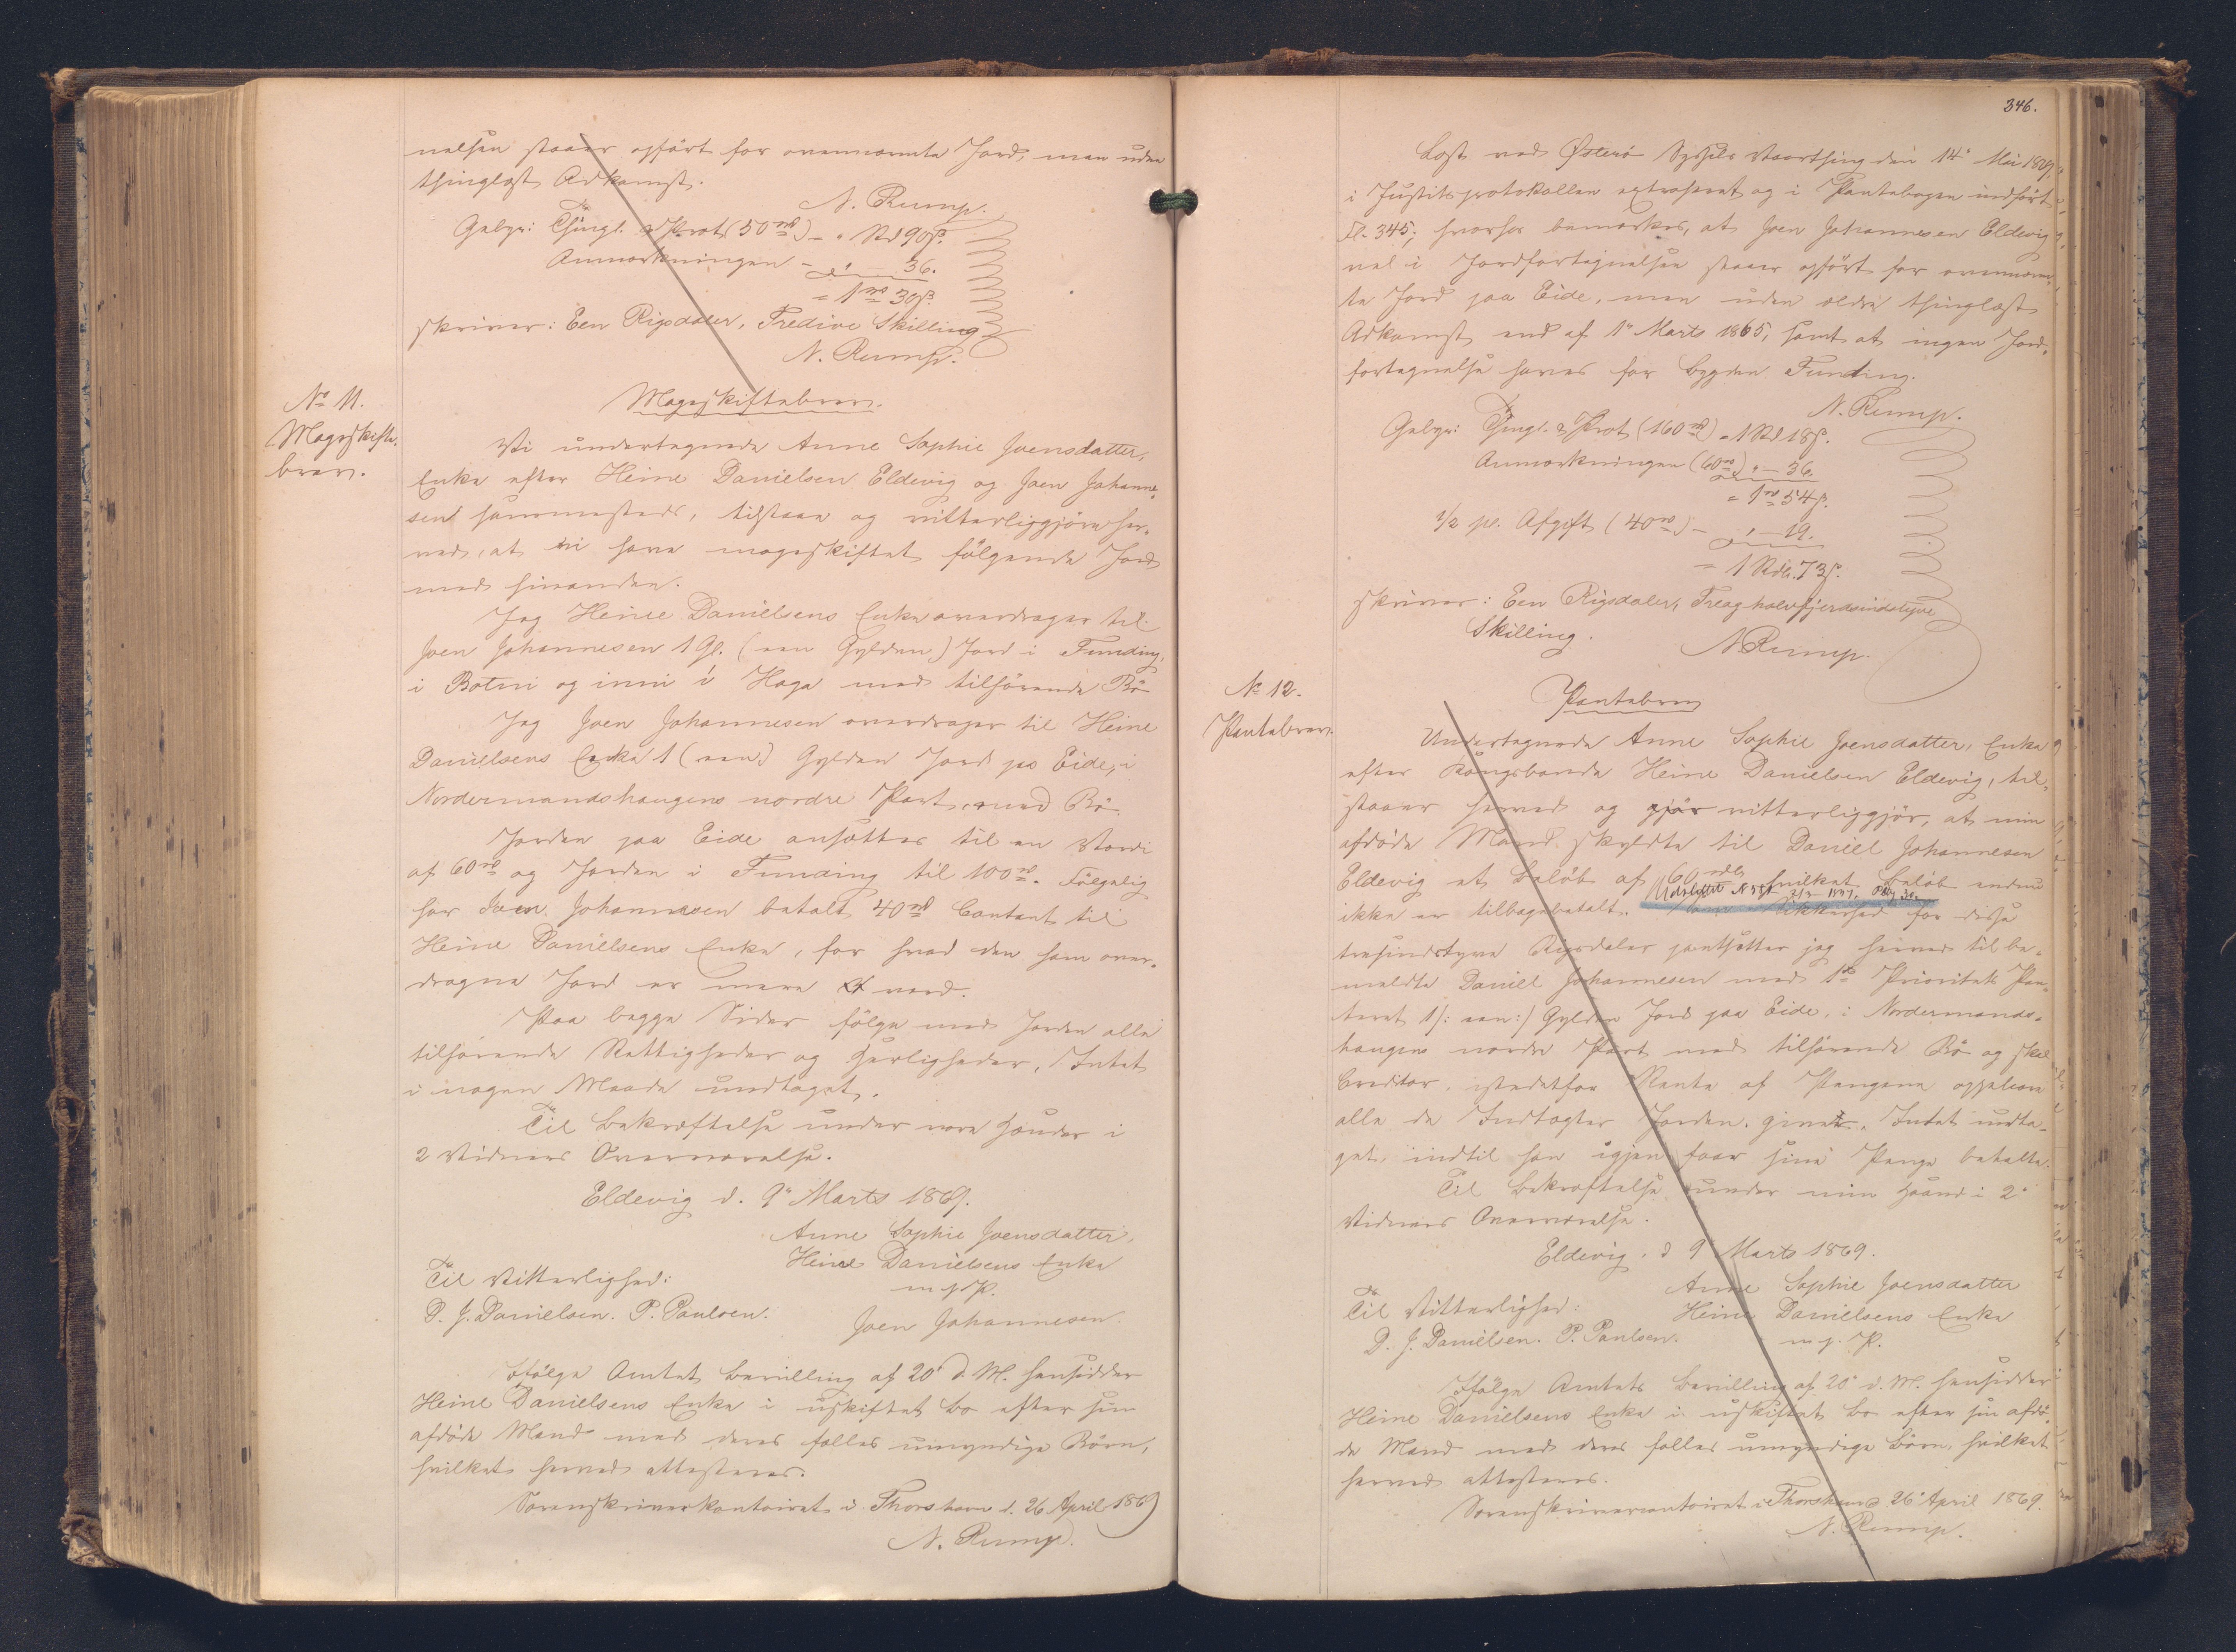 nelsen staaer opført for ovennævnte Jord, men uden
thinglæst Adkomst.
N. Rump.
Gebyr: Thingl. & Prot (50 rd) - " Rd 90 s.
Anmærkningen - " 36.
= 1 rd 30 s.
skriver: Een Rigsdaler, Tredive Skilling
N. Rump.
No 11.
Mageskifte-
brev.
Mageskiftebrev.
Vi undertegnede Anne Sophie Joensdatter,
Enke efter Heine Danielsen Eldevig og Joen Johanne-
sen sammesteds, tilstaae og vitterliggjøre her-
ved, at vi have mageskiftet følgende Jord
med hinanden.
Jeg Heine Danielsens Enke overdrager til
Joen Johannesen 1 Gl. (een Gylden) Jord i Funding,
i Botni og inni i Haga med tilhørende Bø
Jeg Joen Johannesen overdrager til Heine
Danielsens Enke 1 (een) Gylden Jord paa Eide, i
Nordermandshaugens nordre Part, med Bø.
Jorden paa Eide ansættes til en Værdi
af 60 rd og Jorden i Funding til 100 rd. Følgelig
har Joen Johannesen betalt 40 rd Contant til
Heine Danielsens Enke, for hvad den ham over-
dragne Jord er mere værd.
Paa begge Sider følge med Jorden alle
tilhørende Rettigheder og Herligheder, Intet
i nogen Maade undtaget.
Til Bekræftelse under vore Hænder i
2 Vidners Overværelse.
Eldevig d. 9de Marts 1869.
Anne Sophie Joensdatter,
Heine Danielsens Enke
m. f. P.
Til Vitterlighed:
D. J. Danielsen. P. Poulsen.
Joen Johannesen.
Ifølge Amtets Bevilling af 20' d. M. hensidder
Heine Danielsens Enke i uskiftet Bo efter sin
afdøde Mand med deres fælles umyndige Børn,
hvilket herved attesteres.
Sorenskriverkontoiret i Thorshavn d. 26 April 1869
N. Rump.
346.
Læst ved Østerø Syssels Vaarthing den 14' Mai 1869,
i Justitsprotokollen extraheret og i Pantebogen indført
Fl. 345; hvorhos bemærkes, at Joen Johannesen Eldevig
vel i Jordfortegnelsen staaer opført for ovennævn-
te Jord paa Eide, men uden ældre thinglæst
Adkomst end af 1' Marts 1865, samt at ingen Jord-
fortegnelse haves for Bygden Funding.
N. Rump.
Gebyr: Thingl. & Prot (160 rd) - 1 Rd 18 s.
Anmærkningen (60 rd) " - 36.
= 1 rd 54 s.
1/2 pc. Afgift (40 rd) - " - 19.
= 1 Rdlr. 73 s.
skriver: Een Rigsdaler, Treoghalvfjerdsindstyve
Skilling.
N Rump.
No 12.
Pantebrev.
Pantebrev
Undertegnede Anne Sophie Joensdatter, Enke
efter Kongsbonde Heine Danielsen Eldevig, til-
staaer herved og gjør vitterliggjør, at min
afdøde Mand skyldte til Daniel Johannesen
Eldevig et Beløb af 60 rdlr, hvilket Beløb endnu
Udslettet
ikke er tilbagebetalt. Sikkerhed for disse
tresindstyve Rigsdaler pantsætter jeg herved til be-
meldte Daniel Johannesen med 1ste Prioritets Pan-
teret 1 /: een :/ Gylden Jord paa Eide, i Nordermands-
haugens nordre Part med tilhørende Bø og skal
Creditor, istedetfor Rente af Pengene oppebære
alle de Indtægter Jorden giver, Intet undta-
get, indtil han igjen faar sine Penge betalte.
Til Bekræftelse under min Haand i 2'
Vidners Overværelse.
Eldevig, d 9' Marts 1869.
Anne Sophie Joensdatter
Til Vitterlighed:
Heine Danielsens Enke
D. J. Danielsen. P. Poulsen.
m. f. P.
Ifølge Amtets Bevilling af 20' d. M. hensidder
Heine Danielsens Enke i uskiftet Bo efter sin afdø-
de Mand med deres fælles umyndige Børn, hvilket
herved attesteres.
Sorenskrivercontoiret i Thorshavn d 26' April 1869.
N. Rump.